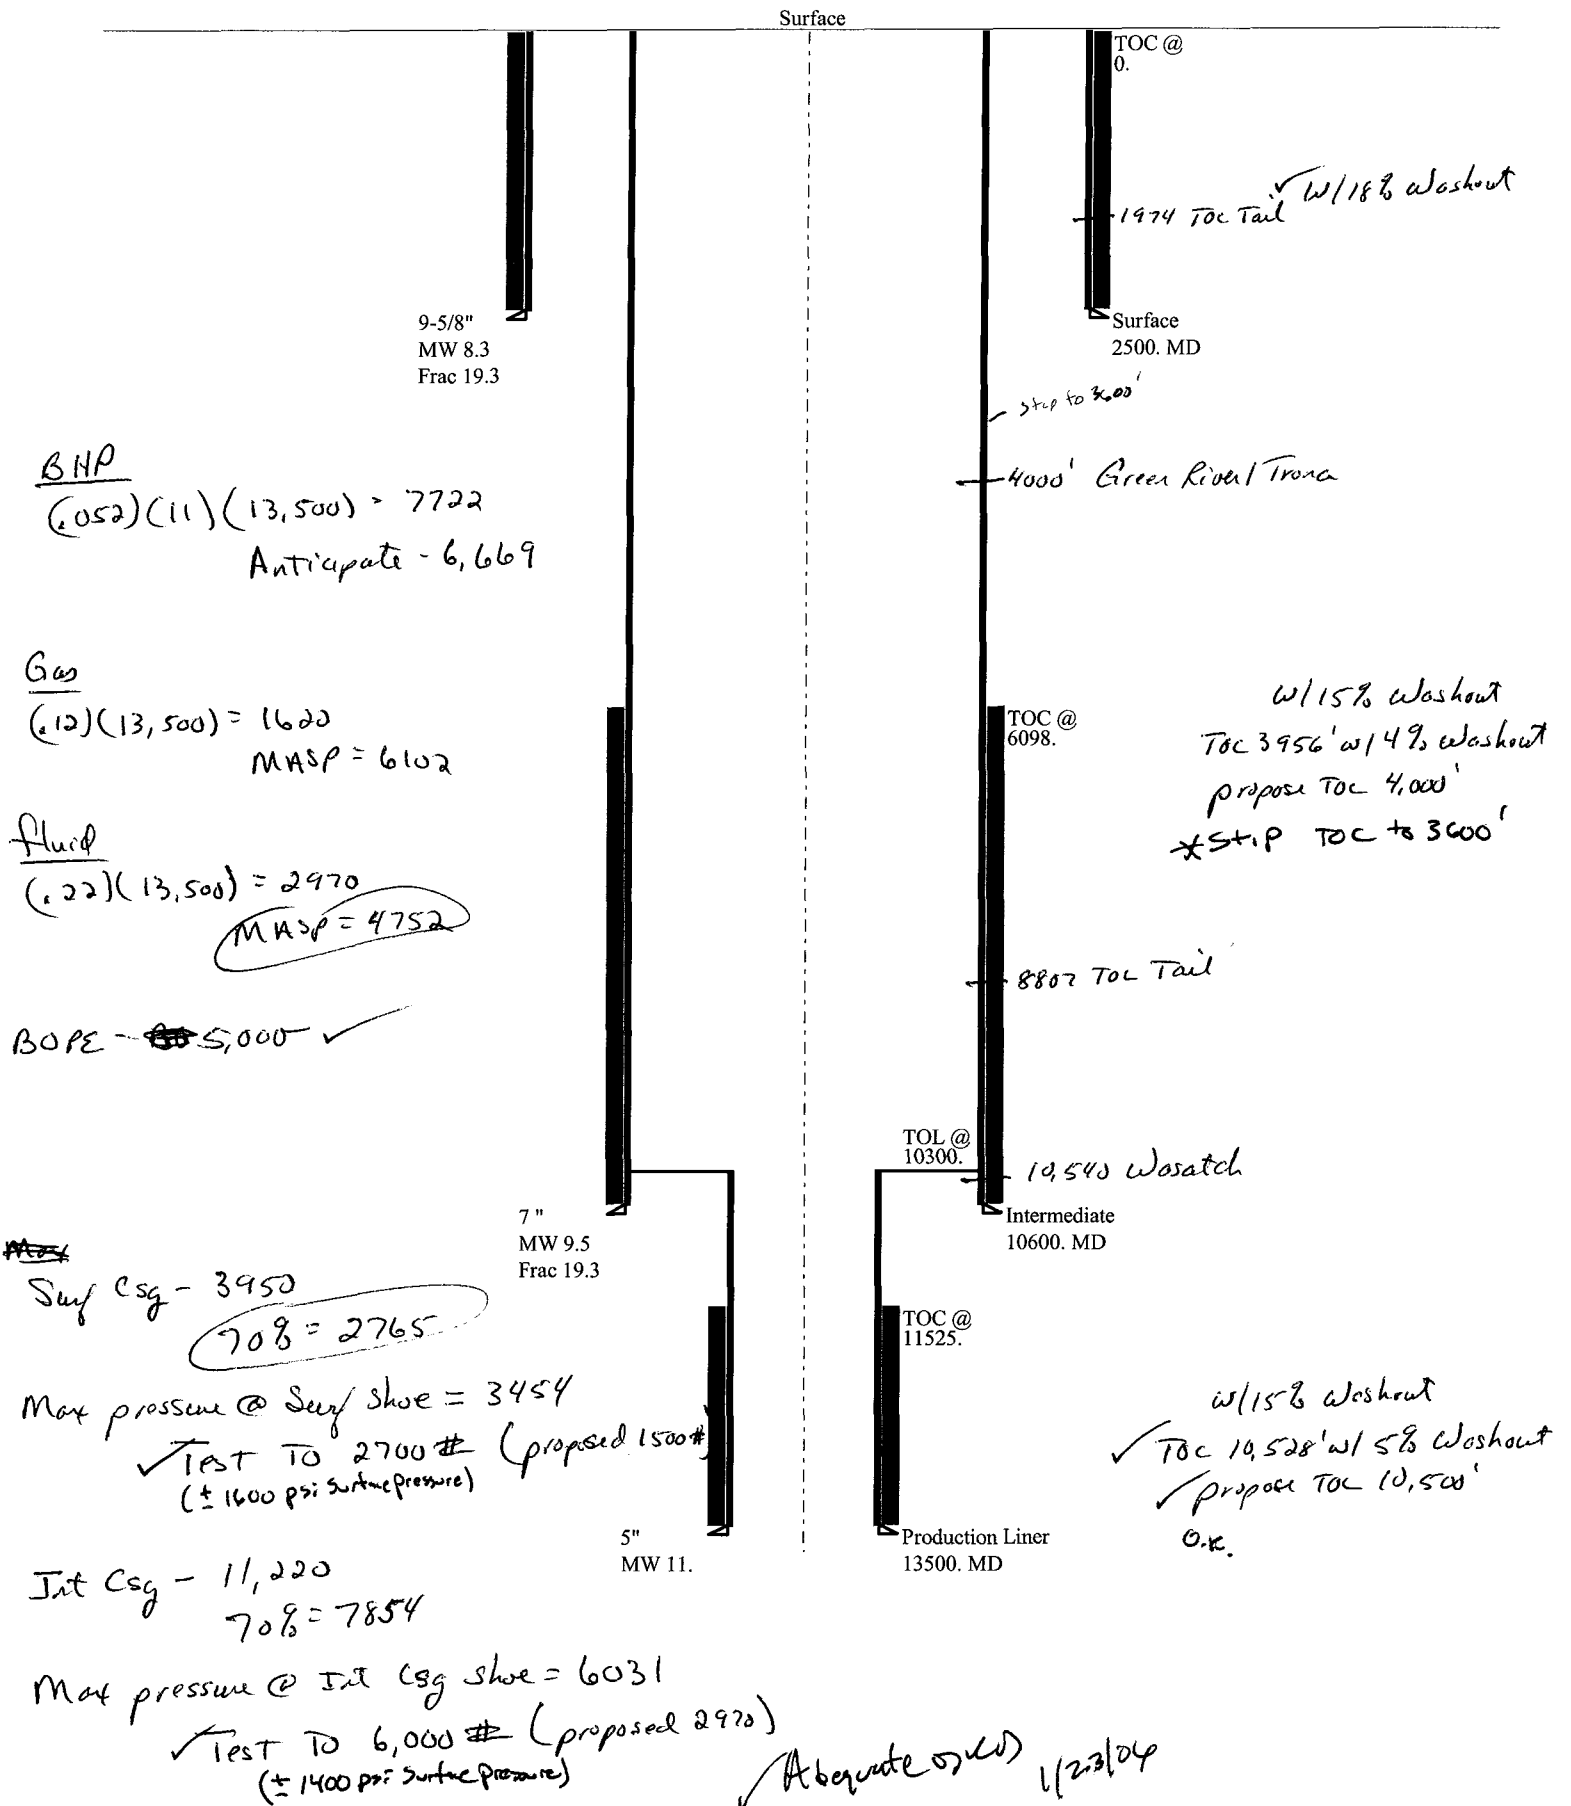 Surface
TOC @
0.
1974 TOC Tail
✓ W/18% Washout
9-5/8"
MW 8.3
Frac 19.3
Surface
2500. MD
Stip to 3600'
4000' Green River/Trona
BHP
(.052)(11)(13,500) = 7722
Anticipate - 6,669
Gas
(.12)(13,500) = 1620
MASP = 6102
fluid
(.22)(13,500) = 2970
MASP = 4752
BOPE - 5,000 ✓
TOC @
6098.
w/15% Washout
TOC 3956' w/4% Washout
propose TOC 4,000'
*Stip TOC to 3600'
8807 TOC Tail
TOL @
10300.
10,540 Wasatch
7 "
MW 9.5
Frac 19.3
Intermediate
10600. MD
Surf Csg - 3950
70% = 2765
Max pressure @ Surf Shoe = 3454
✓ Test To 2700 # (proposed 1500#)
(± 1600 psi Surface pressure)
TOC @
11525.
w/15% Washout
✓ TOC 10,528' w/ 5% Washout
✓ propose TOC 10,500'
O.K.
5"
MW 11.
Production Liner
13500. MD
Int Csg - 11,220
70% = 7854
Max pressure @ Int Csg Shoe = 6031
✓ Test To 6,000 # (proposed 2970)
(± 1400 psi Surface pressure)
✓ Adequate 1/23/04